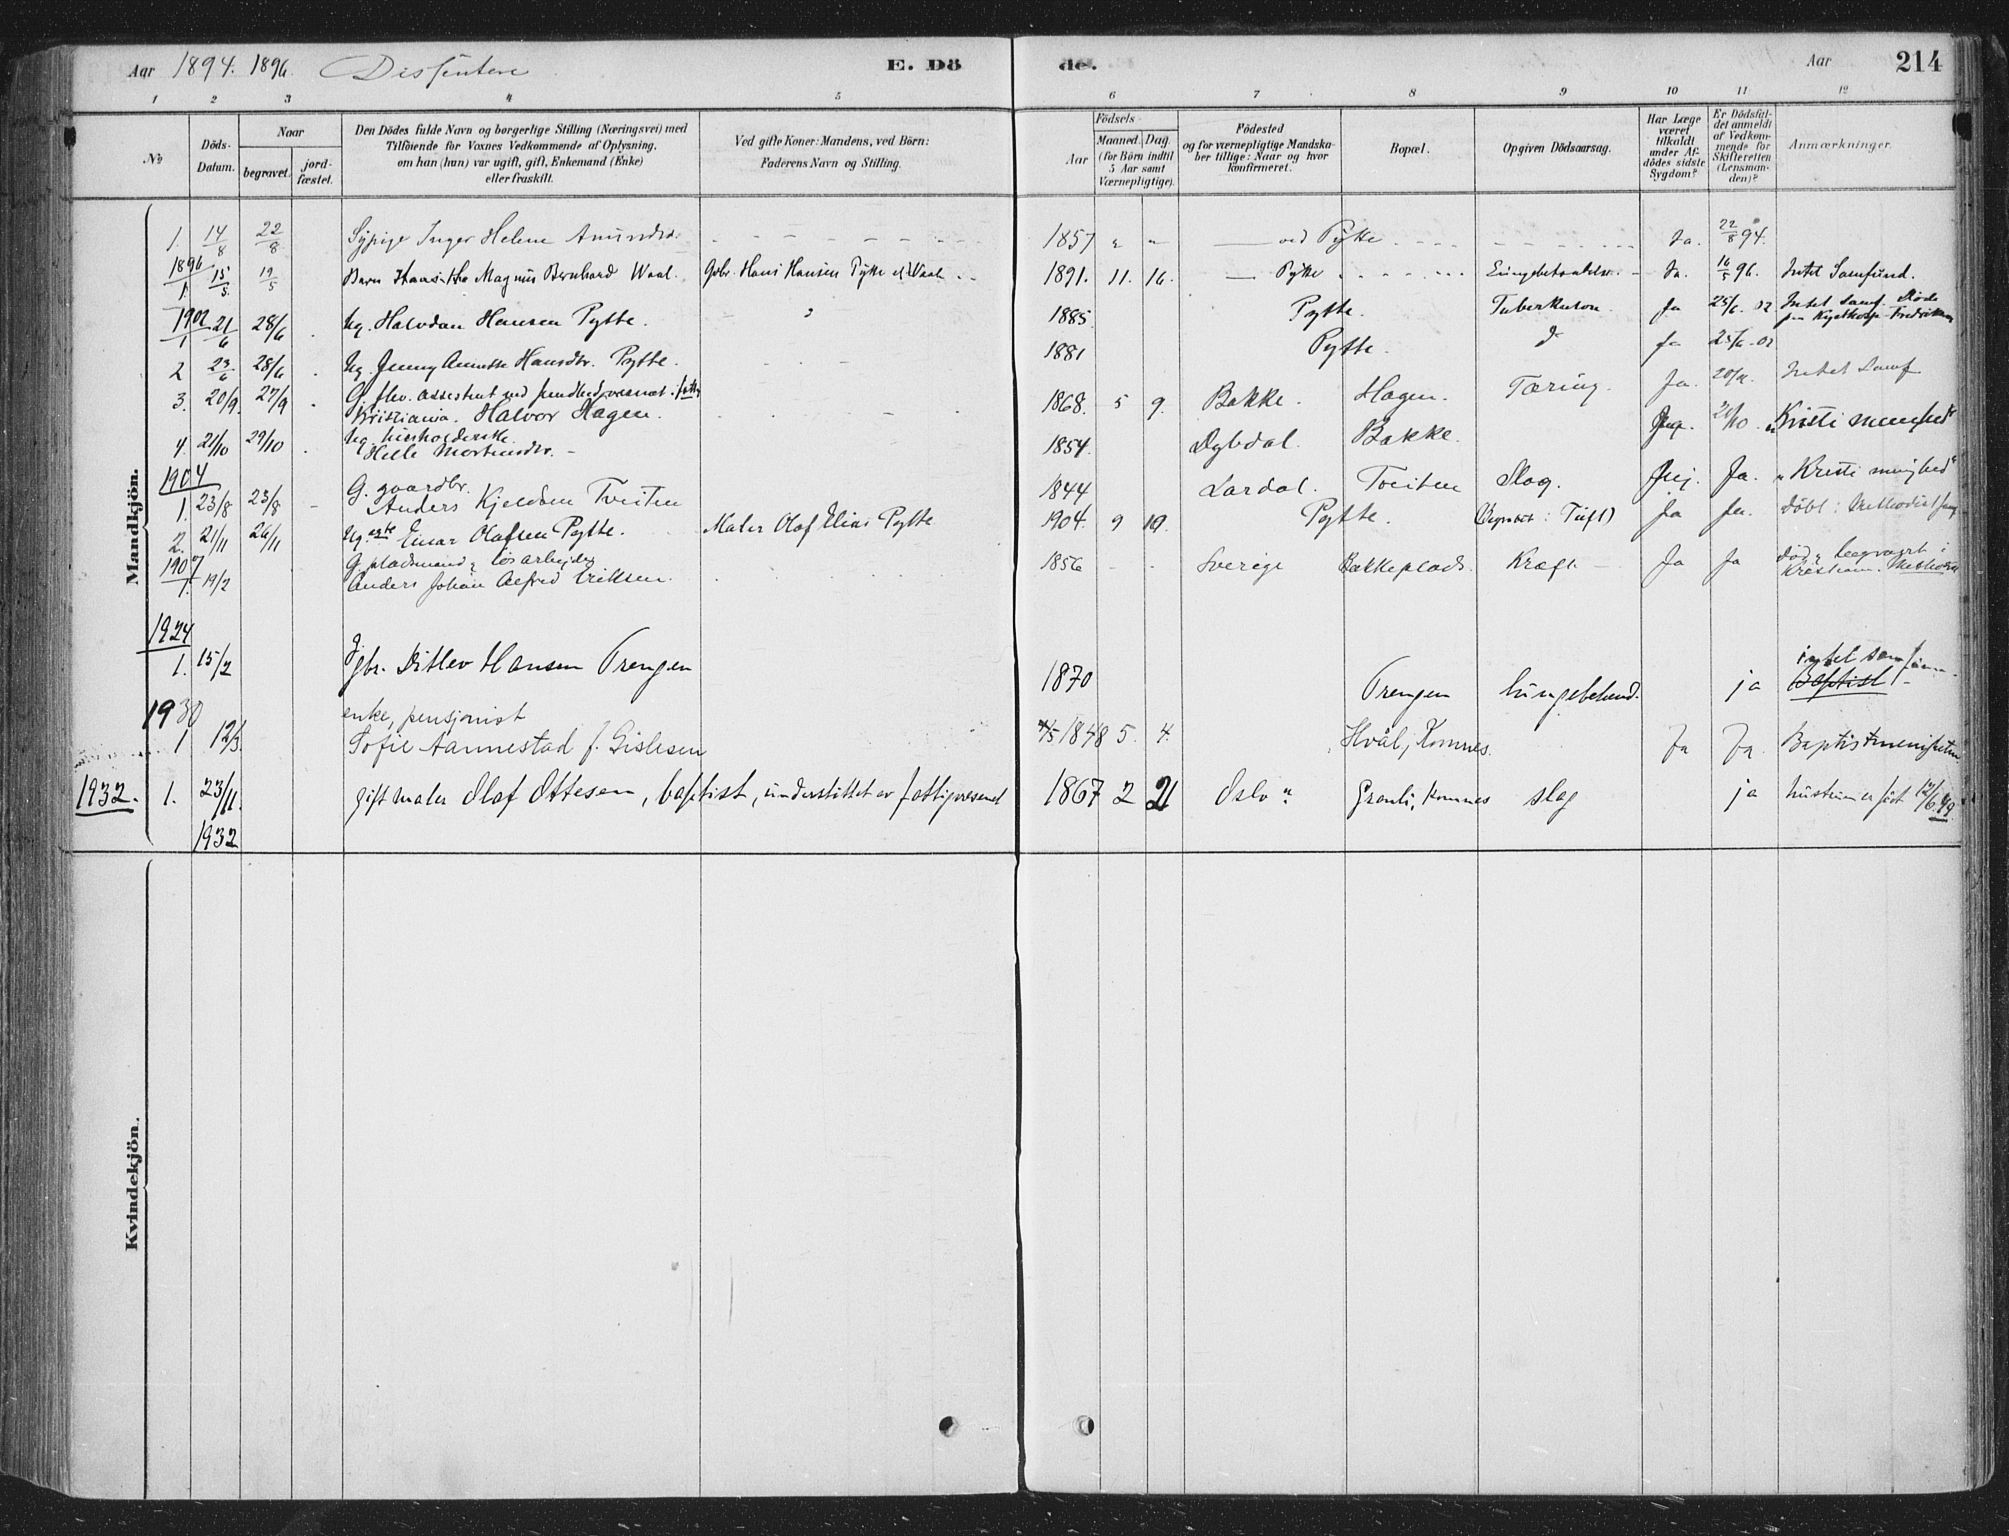 Aar 1894. 1896. Dissentere E. Dö de. Aar 214
1 2 3 4 5 6 7 8 9 10 11 12
No
Döds-Datum.
Naar
begravet.
jord-fæstet.
Den Dödes fulde Navn og borgerlige Stilling (Næringsvei) med
Tilföiende for Voxnes Vedkommende af Oplysning,
om han (hun) var ugift, gift, Enkemand (Enke)
eller fraskilt.
Ved gifte Koner: Mandens, ved Börn:
Faderens Navn og Stilling.
Födsels
Aar
Maaned. Dag.
(for Börn indtil
5 Aar samt
Værnepligtige).
Födested
og for værnepligtige Mandska-
ber tillige: Naar og hvor
konfirmeret.
Bopæl.
Opgiven Dödsaarsag.
Har Læge
været
tilkaldt
under Af-
dödes sidste
Sygdom?
Er Dödsfal-
det anmeldt
af Vedkom-
mende for
Skifteretten
(Lensman-
den)?
Anmærkninger.
Mandkjön.
1. 14/8 22/8 Sypige Inger Helene Amundsd. 1857 " " ved Pytte Ja. 22/8 94.
1896
1 15/5 19/5 Barn Hans Magnus Bernhard Waal. Gbr. Hans Hansen Pytte Waal 1891. 11. 16. Pytte Ja. 16/5 96. Intet Samfund.
1902
1 21/6 28/6 Ug. Halvdan Hansen Pytte. 1885 Pytte. Tuberkulose Ja 25/6. 02 Intet Samf. Döde
2 23/6 28/6 Ug. Jenny Annette Hansdtr. Pytte. 1881 Pytte. do Ja 25/6 02
3. 20/9. 27/9 G. assistent ved
Kristiania. Halvor Hagen. 1868. 5 9. Bakke. Hagen. Tæring. Ja. Intet Samf
4. 21/10 29/10 Ug. husholderske
Helle Mortensdtr. 1854. Dybdal. Bakke. "Kristi menighed"
1904
1. 23/8 23/8 G. gaardbr.
Anders Kjeldsen Tveiten 1844 Lardal. Tveiten Slag. Nej. Ja. "Kristi menighed"
2. 21/11 26/11 Ug. Einar Olafsen Pytte. Maler Olaf Elias Pytte 1904. 9 19. Pytte. Ja Ja. Döbt: Methodist
1907
1. 19/2 G. pladsmand, lösarbejder
Anders Johan Alfred Eriksen. 1856 Sverige Bakkeplads. Kræft Ja Ja
1924
1. 15/2 gbr. Ditlev Hansen Trengen 1870 Trengen lungebetend. ja intet samfunn
Baptist
1930
1 12/3. enke, pensjonist
Sofie Aannestad f. Gislesen 4/5 1848 5. 4. Hvål, Komnes. Ja Ja. Baptistmenigheten
1932. 1. 23/11. 1932 gift maler Olaf Ottesen, baptist, understöttet av fattigvesenet 1867 2 21 Oslo Grønli, Komnes slag ja hustruen er født 12/6.
Kvindekjön.